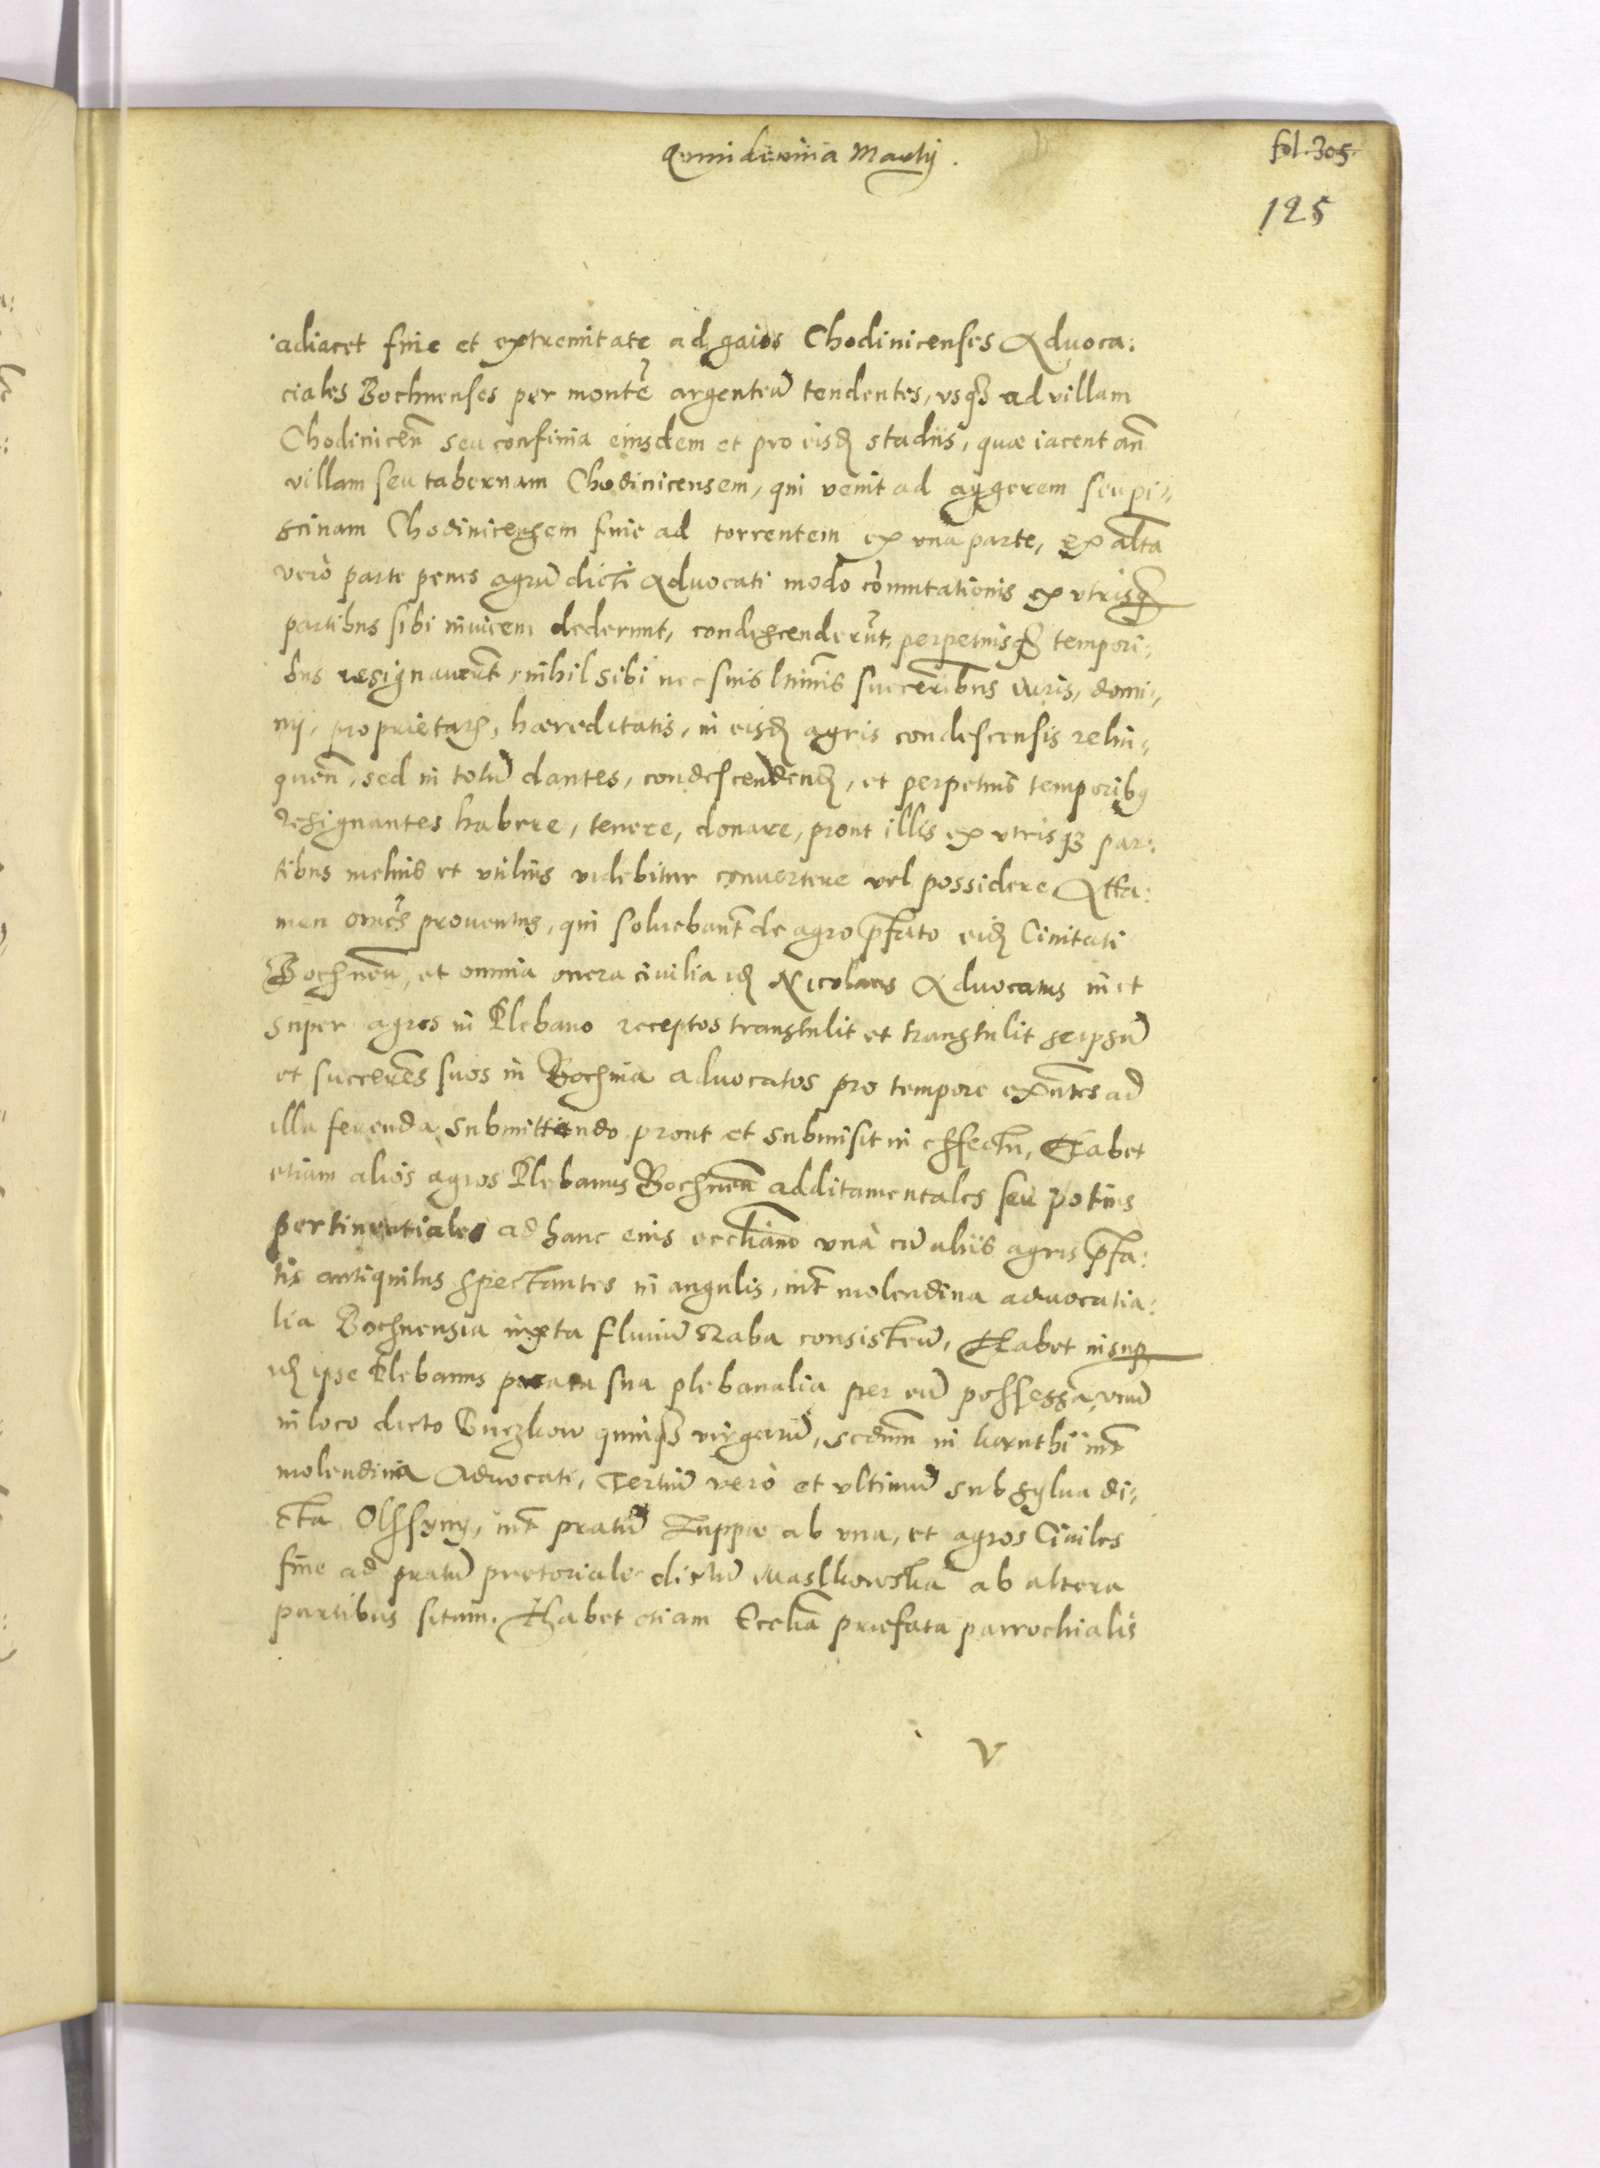 Quindecima Martij.
fol. 305.
125
adiacet fine et extremitate ad gaios Chodinicenses Advoca:
ciales Bochnenses per montē argenteū tendentes, vsq3 ad villam
Chodinicen̄ seu confinia eiusdem et pro eisd stadiis, quæ iacent an̄
villam seu tabernam Chodinicensem, qui venit ad aggerem seu pi-
scinam Chodinicensem fine ad torrentem ex una parte, ex alt̄a
verò parte penes agrū dicti Advocati modo cōmutationis ex vtrisq
partibus sibi inuicem dederunt, condescenderūt, perpetuisq3 tempori-
bus resignauerūt, nihil sibi nec suis ltimis succeribus iuris, domi-
nij, proprietatis, hæreditatis, in eisd agris condescensis relin-
quen̄, sed in totū dantes, condescendend, et perpetuis temporibq
resignantes habere, tenere, donare, prout illis ex vtrisq3 par:
tibus melius et vtilius videbitur conuertere vel possidere Atta:
men omēs prouentus, qui soluebant̄ de agro p̄fato eid Ciuitati
Bochnen̄, et omnia onera ciuilia id Nicolaus Advocatus in et
super agros in Plebano receptos transtulit et transtulit seipsū
et succeres̄ suos in Bochnia advocatos pro tempore exn̄tes ad
illa ferenda submittendo prout et submisit in effectu, Habet
etiam alios agros Plebanus Bochnen̄ additamentales seu potius
pertinentiales ad hanc eius eccliam unà cū aliis agris p̄fa:
tis antiquitus spectantes in angulis, int̄ molendina advocatia:
lia Bochnensia iuxta fluuiū Raba consisteñ, Habet insup
id ipse Plebanus prata sua plebanalia per eū possessa, vnū
in loco dicto Buczkow quinq3 virgarū, scdum in kunthi int̄
molendina Advocati, Tertiū verò et vltimū sub sylua di-
cta Olssyny, int̄ pratū Zuppæ ab vna, et agros Ciuiles
fine ad pratū pretoriale dictū Maslkowska ab altera
partibus situm. Habet etiam Ecclia præfata parrochialis
V